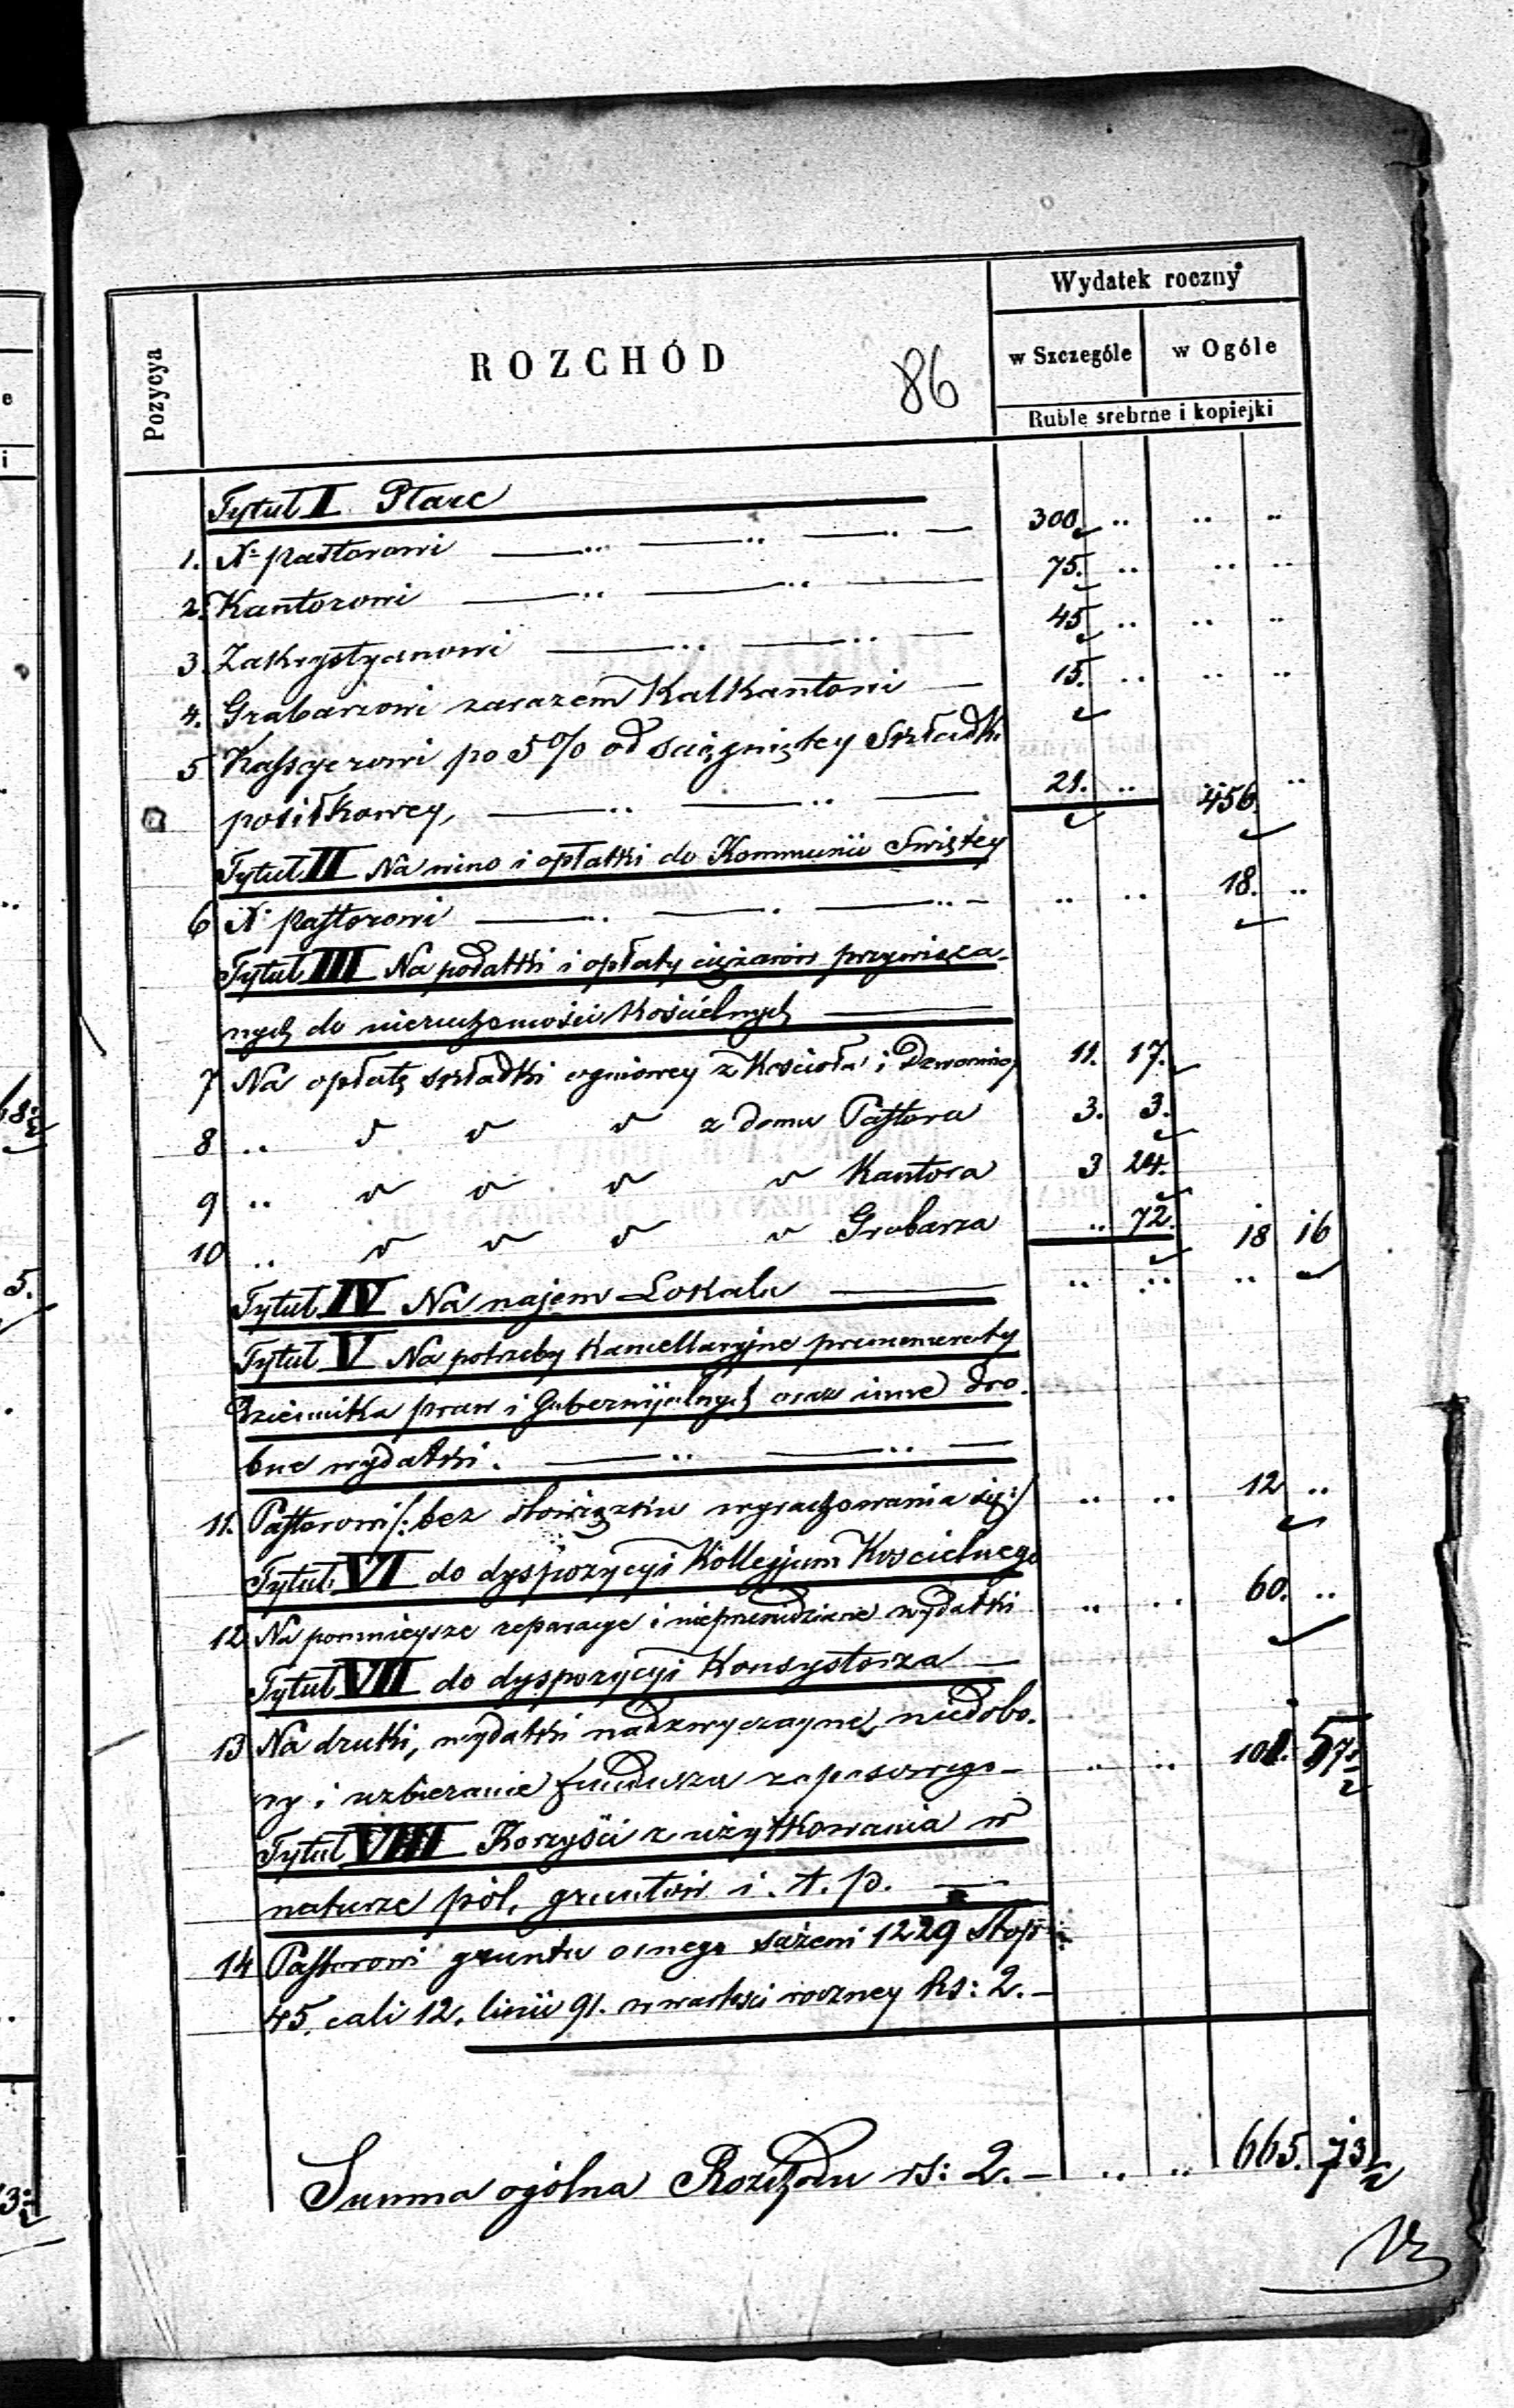 Pozycya
ROZCHÓD
86
Wydatek roczny
w Szczególe
w Ogóle
Ruble srebrne i kopiejki
Tytuł I Płace
1. Xº pastorowi 300 .. .. ..
2. Kantorowi 75. .. .. ..
3. Zakrystyanowi 45 .. .. ..
4. Grabarzowi zarazem Kalkantowi 15. .. .. ..
5 Kassyerowi po 5% od sciągniętey Składki
posiłkowey, 21. .. 456. ..
Tytuł II Na wino i opłatki do Kommunii Swiętey
6 Xº Pastorowi .. .. 18. ..
Tytuł III Na podatki i opłaty ciężarów przywiąza-
nych do nieruchomości Kościelnych
7 Na opłatę składki ogniowey z Kościoła i Dzwonnicy 11. 17.
8 .. z domu Pastora 3. 3.
9 .. Kantora 3 24.
10 .. Grabarza .. 72. 18 16
Tytuł IV Na najem Lokalu .. .. ..
Tytuł V Na potrzeby Kancellaryjne prenumeraty
Dziennika praw i Gubernijalnych oraz inne dro-
bne wydatki.
11. Pastorowi /: bez obowiązku wyrachowania się :/ .. .. 12 ..
Tytuł VI do dyspozycyi Kollegjum Kościelnego
12 Na pomnieysze reparacye i nieprzewidziane wydatki .. .. 60. ..
Tytuł VII do dyspozycyi Konsystorza
13 Na druki, wydatki nadzwyczayne, niedobo-
ry i uzbieranie funduszu zapasowego .. .. 101. 57½
Tytuł VIII Korzyści z użytkowania w
naturze pól, gruntów i. t. p.
14 Pastorowi gruntu ornego sażeni 1229 stop
45. cali 12. linii 91. w wartości roczney Rs: 2.
Summa ogólna Rozchodu rs: 2. .. .. 665. 73½